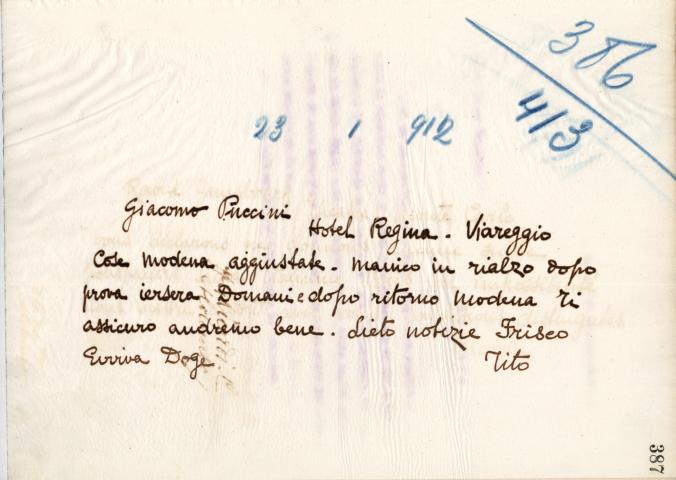 386
413
23 1 912
Giacomo Puccini
Hotel Regina - Viareggio
Cose Modena aggiustate - manico in rialzo dopo
prova iersera Domani e dopo ritorno Modena Ti
assicuro andremo bene. Lieto notizie Frisco
Evviva Doge
Tito
387